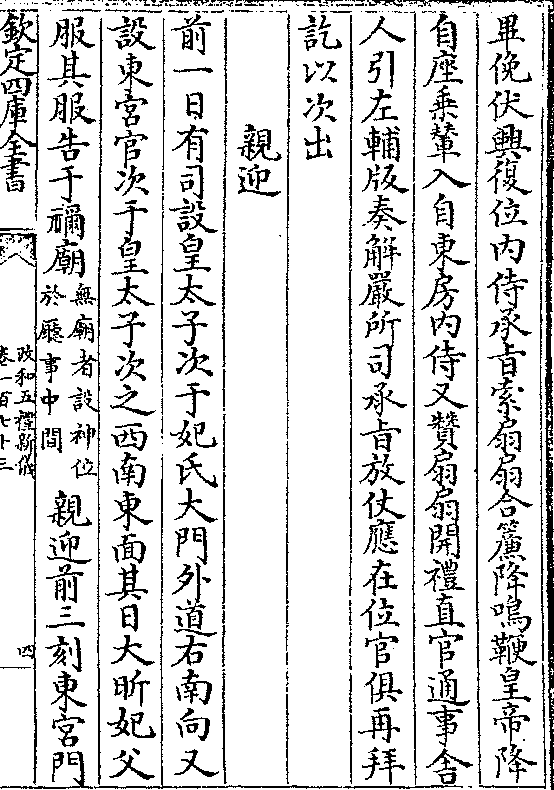 畢俛伏興復位内侍承旨索扇扇合簾降鳴鞭皇帝降
自座乗輦入自東房内侍又贊扇扇開禮直官通事舎
人引左輔版奏解嚴所司承旨放仗應在位官俱再拜
訖以次出
親迎
前一日有司設皇太子次于妃氏大門外道右南向又
設東宫官次于皇太子次之西南東面其日大昕妃父
服其服告于禰廟無廟者設神位於廳事中間親迎前三刻東宫門
欽定四庫全書
政和五禮新儀
卷一百七十三
四